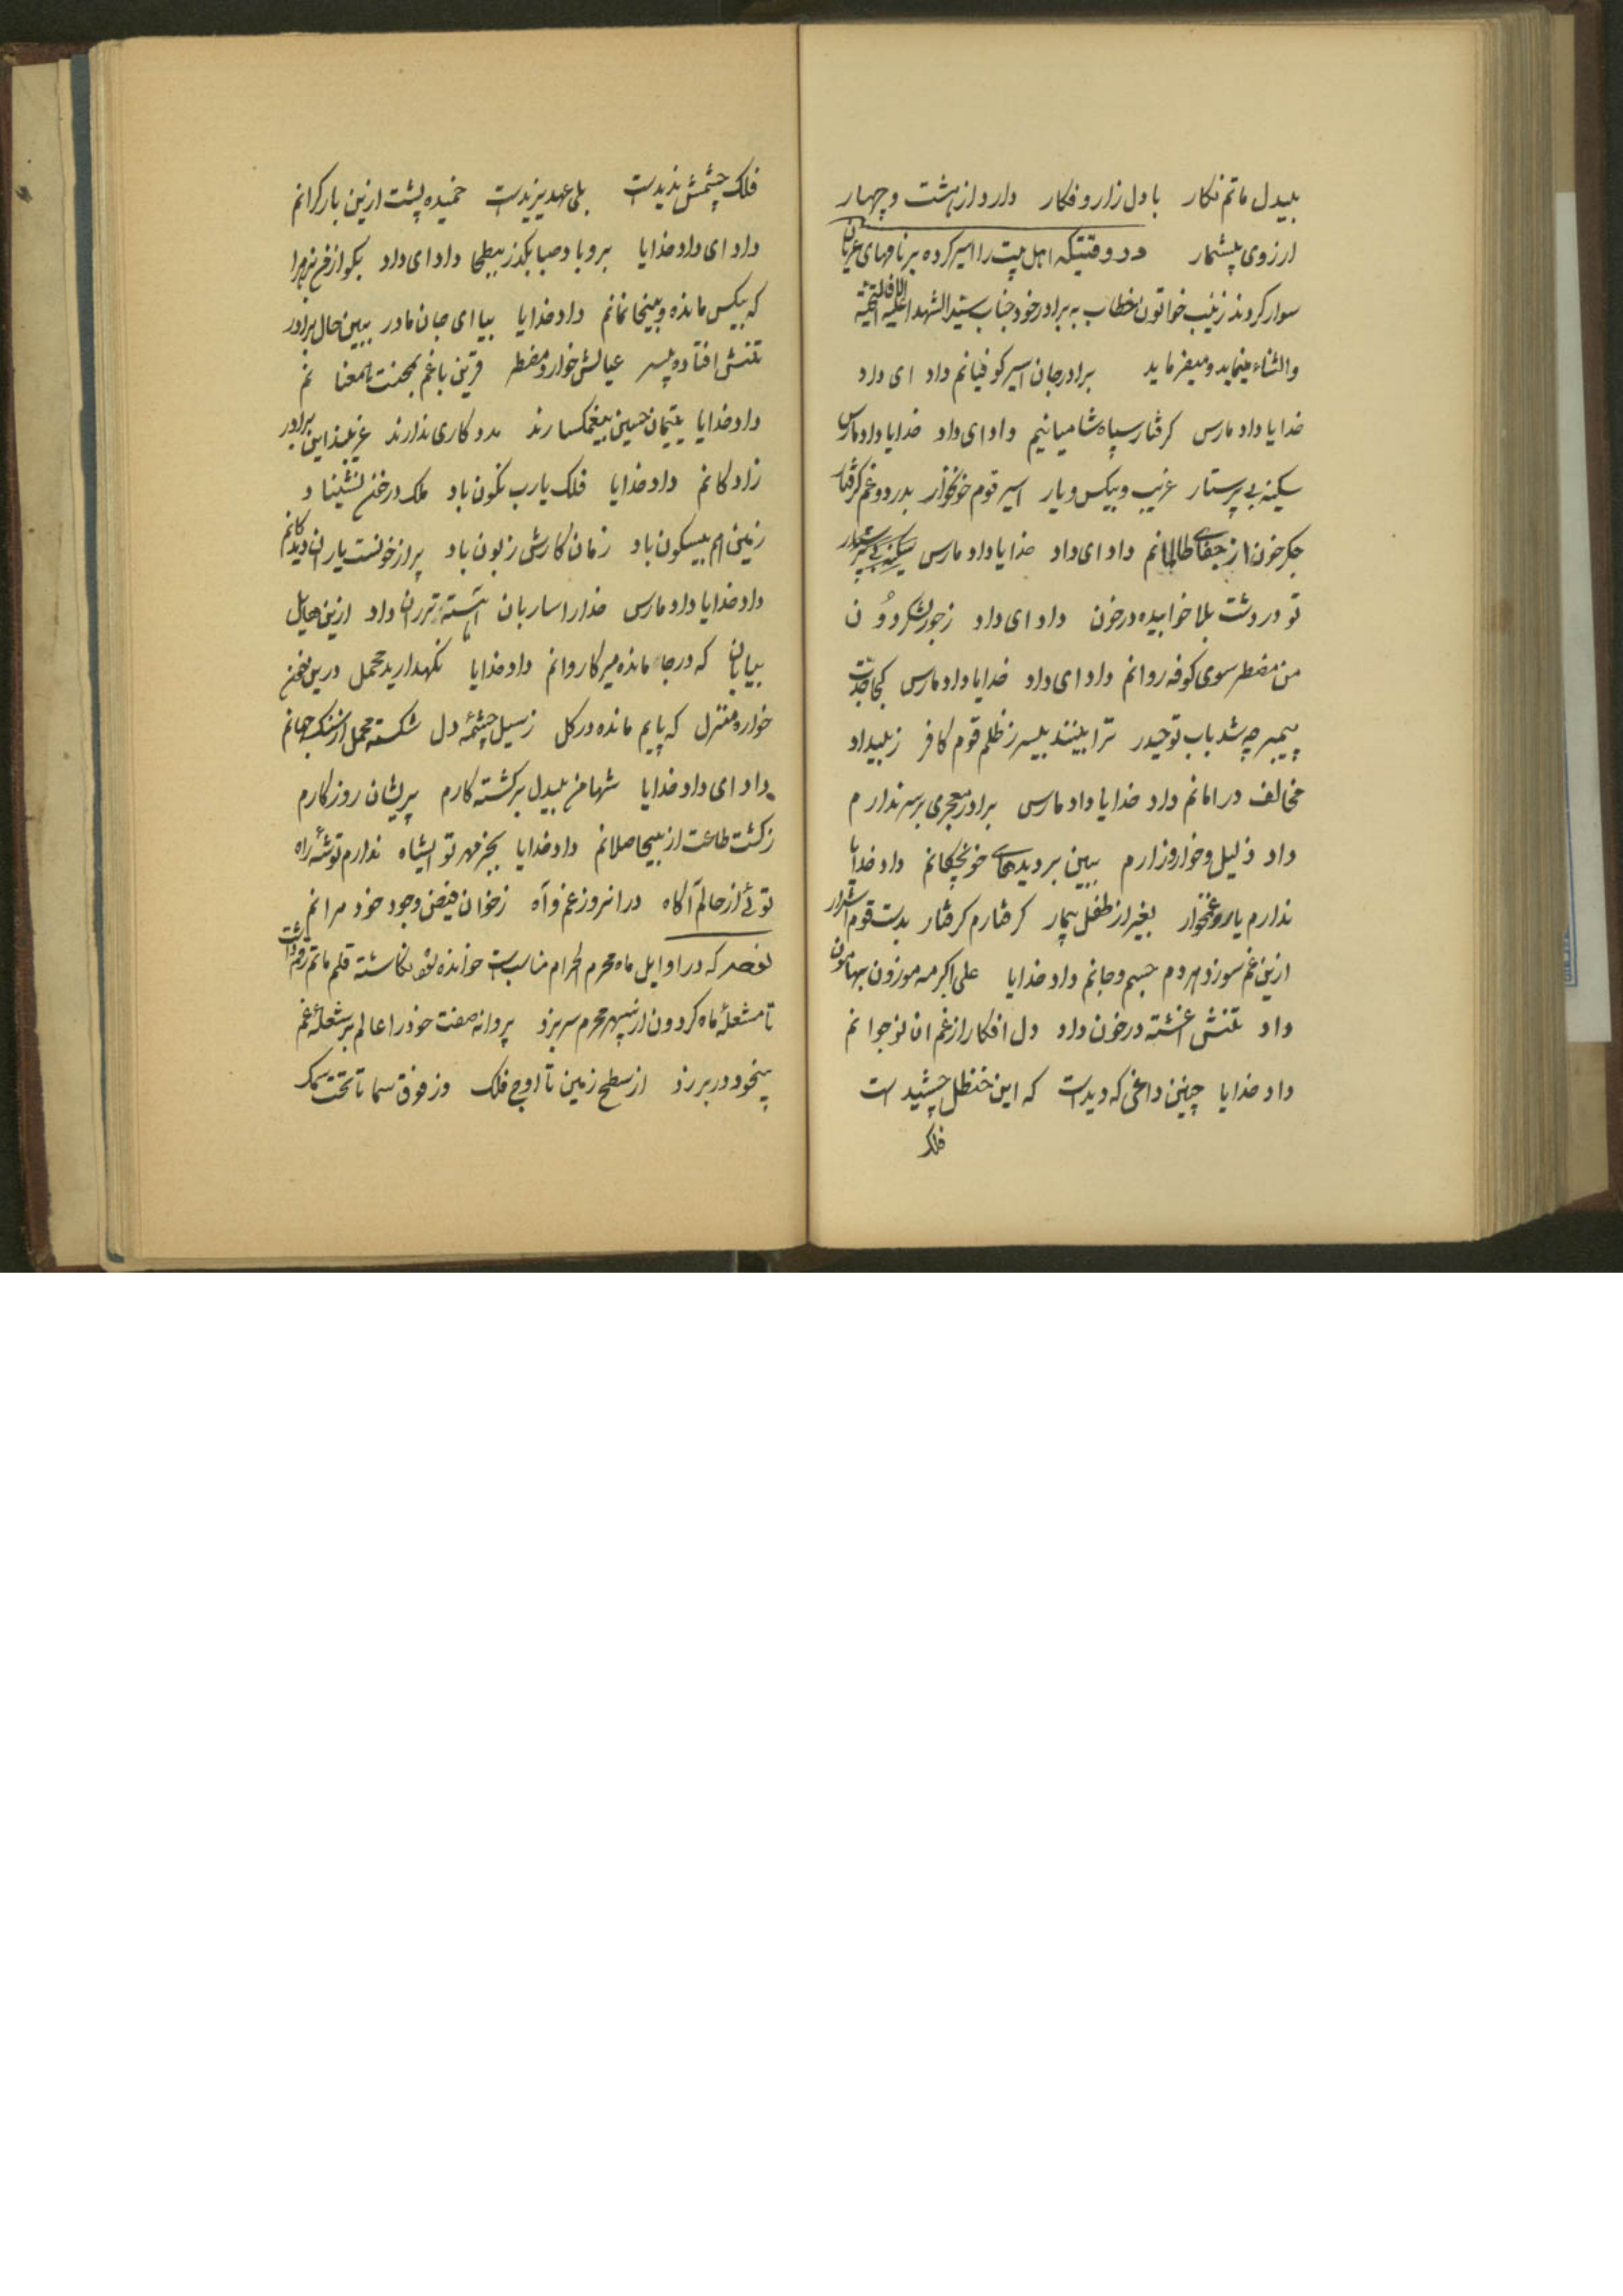 بیدل ماتم نکار با دل زار و فکار دارد از هشت و چهار
ارزوی بیشمار در وقتیکه اهل بیت را اسیر کرده بر ناقهای عریان
سوار کردند زینب خواتون خطاب به برادر خود جناب سید الشهدا علیه الاف التحیة
والثناء مینماید و میفرماید برادر جان اسیر کوفیانم داد ای داد
خدایا داد مارس کرفتار سپاه شامیانیم داد ای داد خدایا داد مارس
سکینه بی پرستار غریب و بیکس و یار اسیر قوم خونخوار بدرد و غم کرفتار
جکر خون از جفای ظالمانم داد ای داد خدایا داد مارس سکینه بی پرستار
تو در دشت بلا خوابیده در خون داد ای داد ز جور لشکر دون
من مضطر سوی کوفه روانم داد ای داد خدایا داد مارس کجا جدت
پیمبر چه شد باب تو حیدر ترا بینند بیسر ز ظلم قوم کافر ز بیداد
مخالف در امانم داد خدایا داد مارس برادر معجری بر سر ندارم
داد ذلیل و خوار و زارم ببین بر دیدهای خونچکانم داد خدایا
ندارم یار و غمخوار بغیر از طفل بیمار کرفتارم کرفتار بدست قوم اشرار
ازین غم سوزد هر دم جسم و جانم داد خدایا علی اکبر مه موزون بهامون
داد تنش اغشته در خون داد دل افکار از غم ان نوجوانم
داد خدایا چنین داغی که دیدست که این حنظل چشیدست
فلک
فلک چشمش ندیدست بلی عهد یزیدست خمیده پشت ازین بار کرانم
داد ای داد خدایا برو باد صبا بکذر ببطحا داد ای داد بکو از من بزهرا
که بیکس مانده و بیخانمانم داد خدایا بیا ای جان مادر ببین حال برادر
تنش افتاده بیسر عیالش خوار و مضطر قرین با غم بمحنت همعنانم
داد خدایا یتیمان حسین بیغمکسارند مدد کاری ندارند غریبند این برادر
زاد کانم داد خدایا فلک یا رب نکون باد ملک در غم نشیناد
زمین هم بیسکون باد زمان کارش زبون باد پر از خونست یاران دیدکانم
داد خدایا داد مارس خدا را ساربان آهسته تر ران داد ازین هایل
بیابان که در جا مانده میر کاروانم داد خدایا نکهدارید محمل درین
خواره منزل که پایم مانده در کل ز سیل چشمهٔ دل شکسته محمل از سنک جهانم
داد ای داد خدایا شها من بیدل برکشته کارم پریشان روزکارم
ز کشت طاعت از بیحاصلانم داد خدایا بجز مهر تو ایشاه ندارم توشهٔ راه
توئی از حالم آکاه در انروز غم و آه ز خوان فیض وجود خود مرانم
که در اوایل ماه محرم الحرام مناسبست خوانده شود نکاشته قلم ماتم رقم داشت
تا مشعلهٔ ماه کردون از سپهر محرم سر برزد پروانه صفت خود را عالم بر شعلهٔ غم
بیخود در بر زد از سطح زمین تا اوج فلک وز فوق سما تا تحت سمک